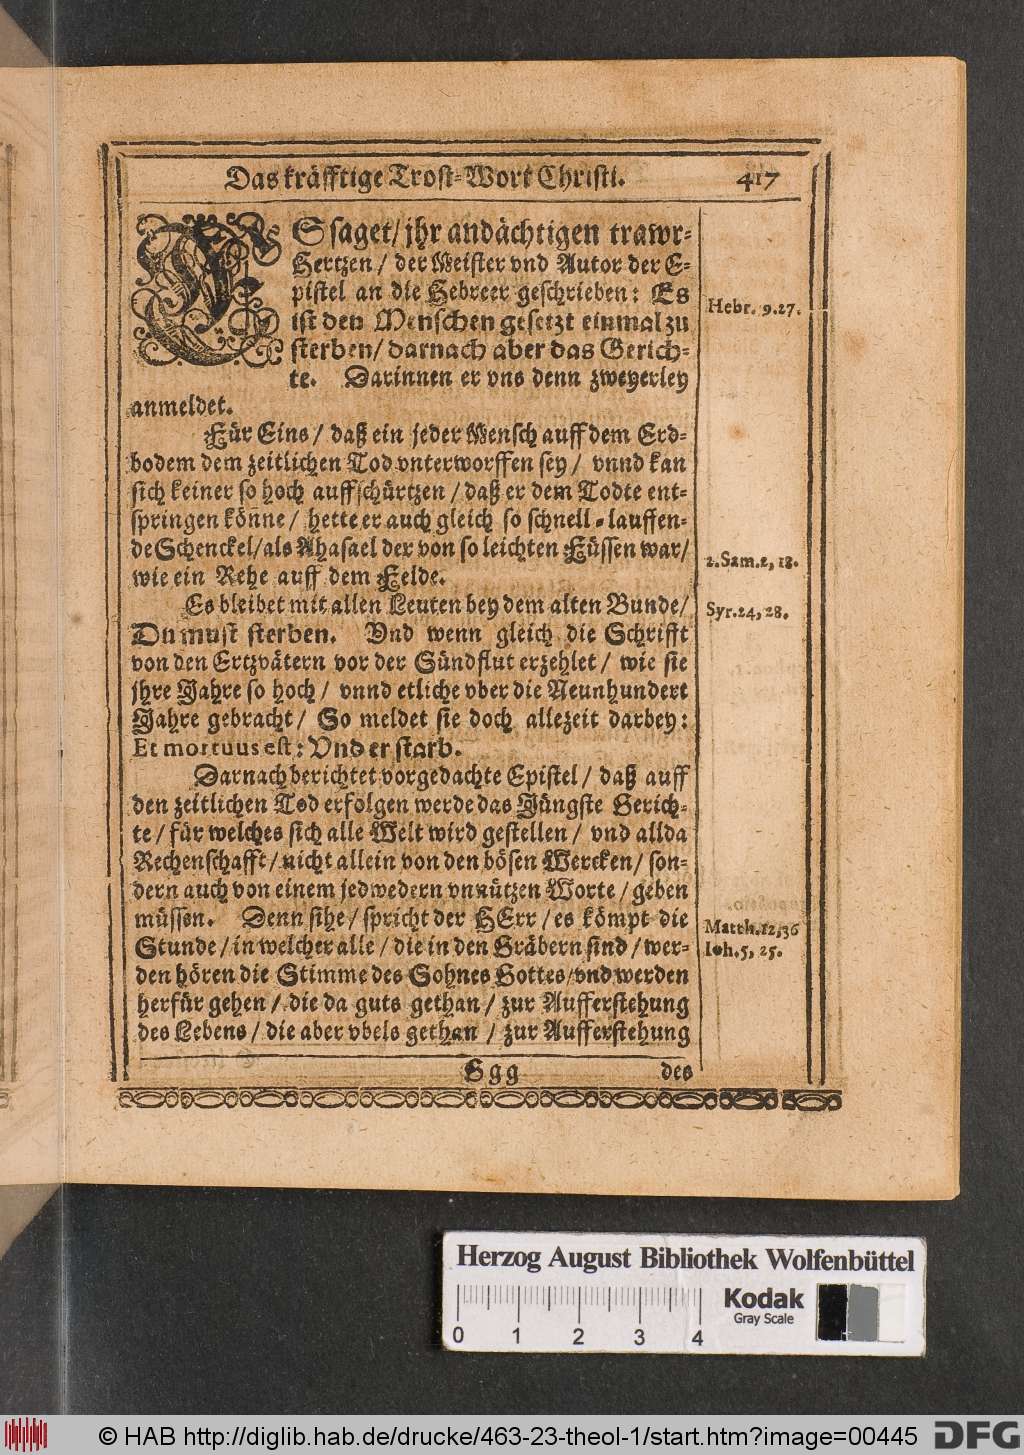 Das kräfftige Trost-Wort Christi. 417
ES saget/ jhr andächtigen trawr-
Hertzen/ der Meister vnd Autor der E-
pistel an die Hebreer geschrieben: Es
ist den Menschen gesetzt einmal zu
sterben/ darnach aber das Gerich-
te. Darinnen er vns denn zweyerley
anmeldet.
Hebr. 9. 27.
Für Eins/ daß ein jeder Mensch auff dem Erd-
bodem dem zeitlichen Tod vnterworffen sey/ vnnd kan
sich keiner so hoch auffschürtzen/ daß er dem Todte ent-
springen könne/ hette er auch gleich so schnell-lauffen-
de Schenckel/ als Ahasael der von so leichten Füssen war/
wie ein Rehe auff dem Felde.
2. Sam. 2, 18.
Es bleibet mit allen Leuten bey dem alten Bunde/
Du must sterben. Vnd wenn gleich die Schrifft
von den Ertzvätern vor der Sündflut erzehlet/ wie sie
jhre Jahre so hoch/ vnnd etliche vber die Neunhundert
Jahre gebracht/ So meldet sie doch allezeit darbey:
Et mortuus est: Vnd er starb.
Syr. 24, 28.
Darnach berichtet vorgedachte Epistel/ daß auff
den zeitlichen Tod erfolgen werde das Jüngste Gerich-
te/ für welches sich alle Welt wird gestellen/ vnd allda
Rechenschafft/ nicht allein von den bösen Wercken/ son-
dern auch von einem jedwedern vnnützen Worte/ geben
müssen. Denn sihe/ spricht der HErr/ es kömpt die
Stunde/ in welcher alle/ die in den Gräbern sind/ wer-
den hören die Stimme des Sohnes Gottes/ vnd werden
herfür gehen/ die da guts gethan/ zur Aufferstehung
des Lebens/ die aber vbels gethan/ zur Aufferstehung
Matth. 12, 36
Ioh. 5, 25.
Ggg des
Herzog August Bibliothek Wolfenbüttel
0 1 2 3 4
Kodak
Gray Scale
© HAB http://diglib.hab.de/drucke/463-23-theol-1/start.htm?image=00445
DFG